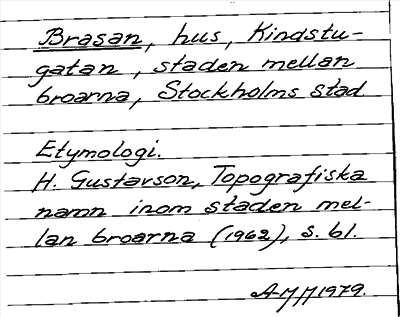 Brasan, hus, Kindstu-
gatan, staden mellan
broarna, Stockholms stad
Etymologi.
H. Gustavson, Topografiska
namn inom staden mel-
lan broarna (1962), s. 61.
1979.